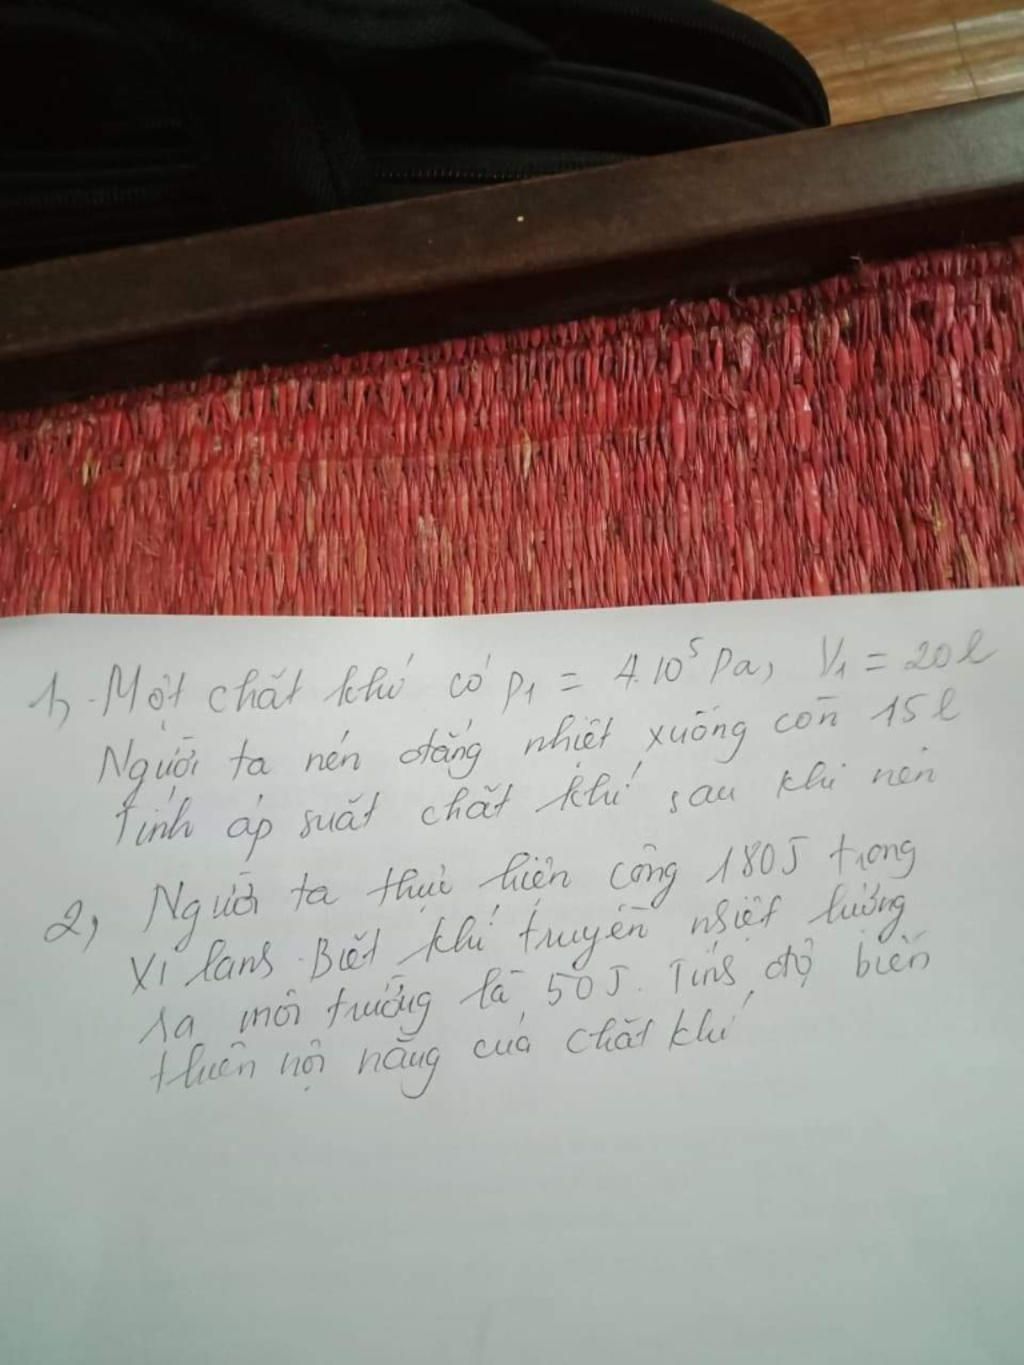 1, Một chất khí có p₁ = 4.10⁵ Pa, V₁ = 20 l
Người ta nén đẳng nhiệt xuống còn 15 l
Tính áp suất chất khí sau khi nén
2, Người ta thực hiện công 180J trong
xi lanh. Biết khí truyền nhiệt lượng
ra môi trường là 50J. Tính độ biến
thiên nội năng của chất khí